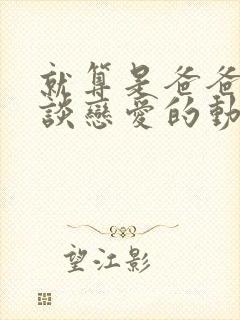 就算是爸爸
談戀愛的動
望江影